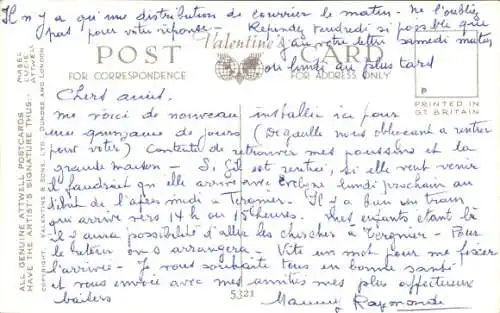 Il n'y a qu'une distribution de courrier le matin - Ne l'oubliez
pas pour votre réponse. Reponse vendredi si possible que
j'ai votre lettre samedi matin
ou lundi au plus tard
POST CARD
Valentine's
FOR CORRESPONDENCE
FOR ADDRESS ONLY
P
PRINTED IN
GT BRITAIN
ALL GENUINE ATTWELL POSTCARDS
HAVE THE ARTIST'S SIGNATURE THUS:-
MABEL
LUCIE
ATTWELL
COPYRIGHT. VALENTINE & SONS, LTD. DUNDEE AND LONDON
Chers amis,
me voici de nouveau installée ici pour
une quinzaine de jours (De gaulle nous obligeant a rentrer
pour voter) Contente de retrouver mes poussins et la
grande maison - Si Gil est rentrée, si elle veut venir
il faudrait qu'elle arrive avec Evelyne lundi prochain au
début de l'après midi à Tergnier. Il y a bien un train
qui arrive vers 14h ou 15 heures. Mes enfants étant là
il y aura possibilité d'aller les chercher à Tergnier - Pour
le retour on s'arrangera - Vite un mot pour me fixer
l'arrivée - Je vous souhaite tous en bonne santé
et vous envoie avec mes amitiés mes plus affectueux
baisers
Mamy Raymonde
5321